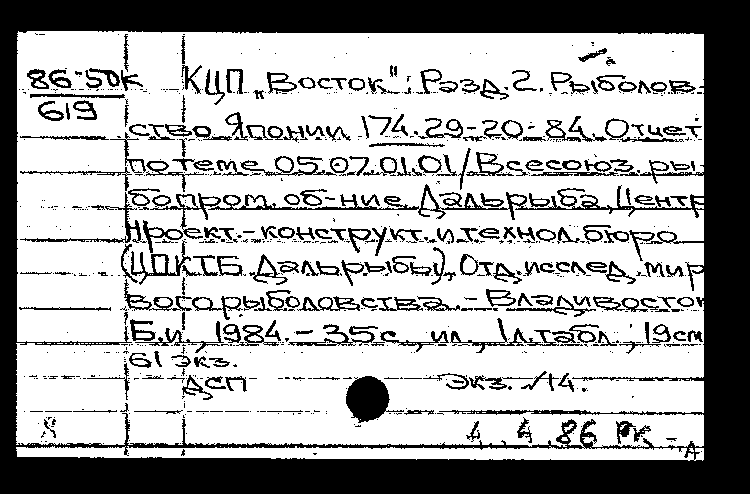 86-50к КЦП „Восток": Разд. 2. Рыболов-
619
ство Японии 174.29-20-84. Отчет
по теме 05.07.01.01/Всесоюз. ры-
бопром. об-ние Дальрыба, Центр
проект.-конструкт. и технол. бюро
(ЦПКТБ Дальрыбы), Отд. исслед. мир
вого рыболовства. - Владивосток
Б.и., 1984. - 35 с., ил., 1 л. табл.; 19 см
61 экз.
ДСП Экз. √14.
Я 4. 4. 86 РК -
А